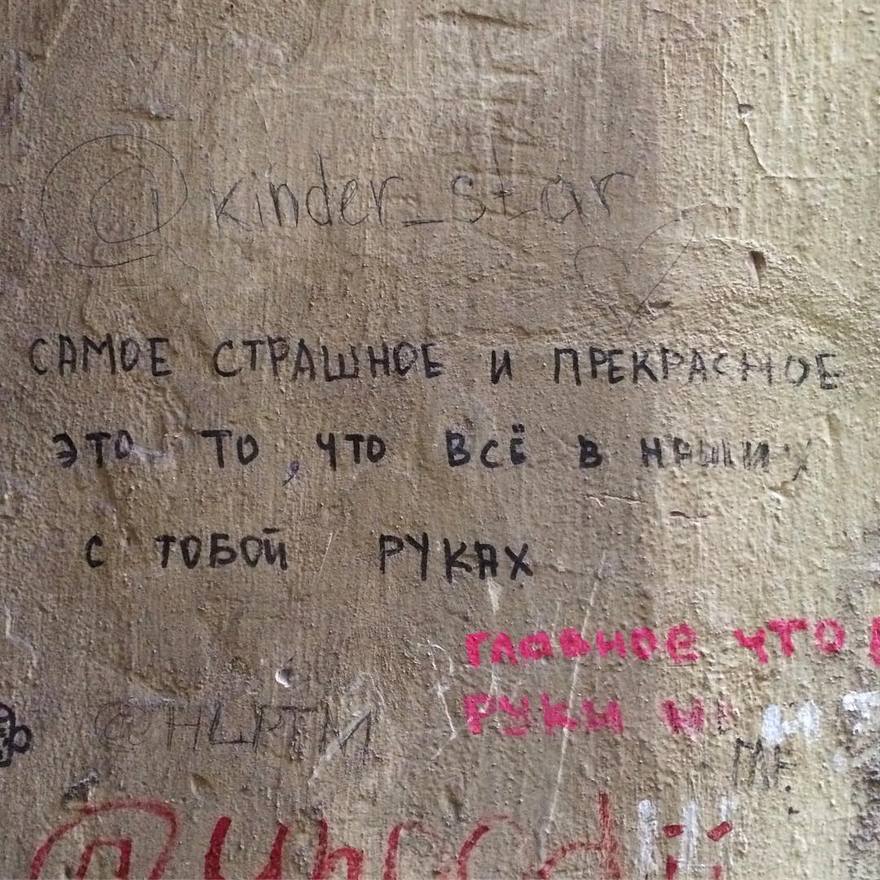 @kinder_star
САМОЕ СТРАШНОЕ И ПРЕКРАСНОЕ
ЭТО ТО, ЧТО ВСЁ В НАШИХ
С ТОБОЙ РУКАХ
главное что
РУКИ
@HLPTM